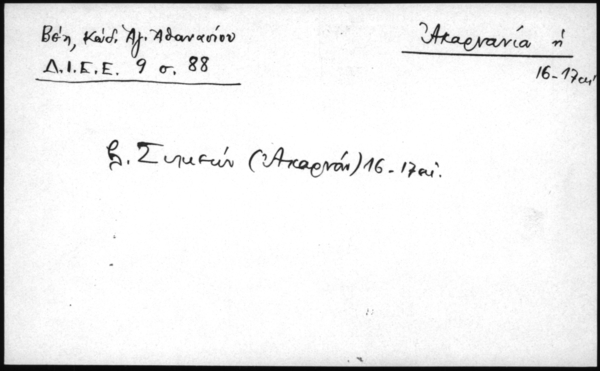 Βέη, Κώδ. Ἁγ. Ἀθανασίου
Δ.Ι.Ε.Ε. 9 σ. 88
Ἀκαρνανία ἡ
16-17αἰ
β. Συμεών (Ἀκαρνάν) 16-17αἰ.